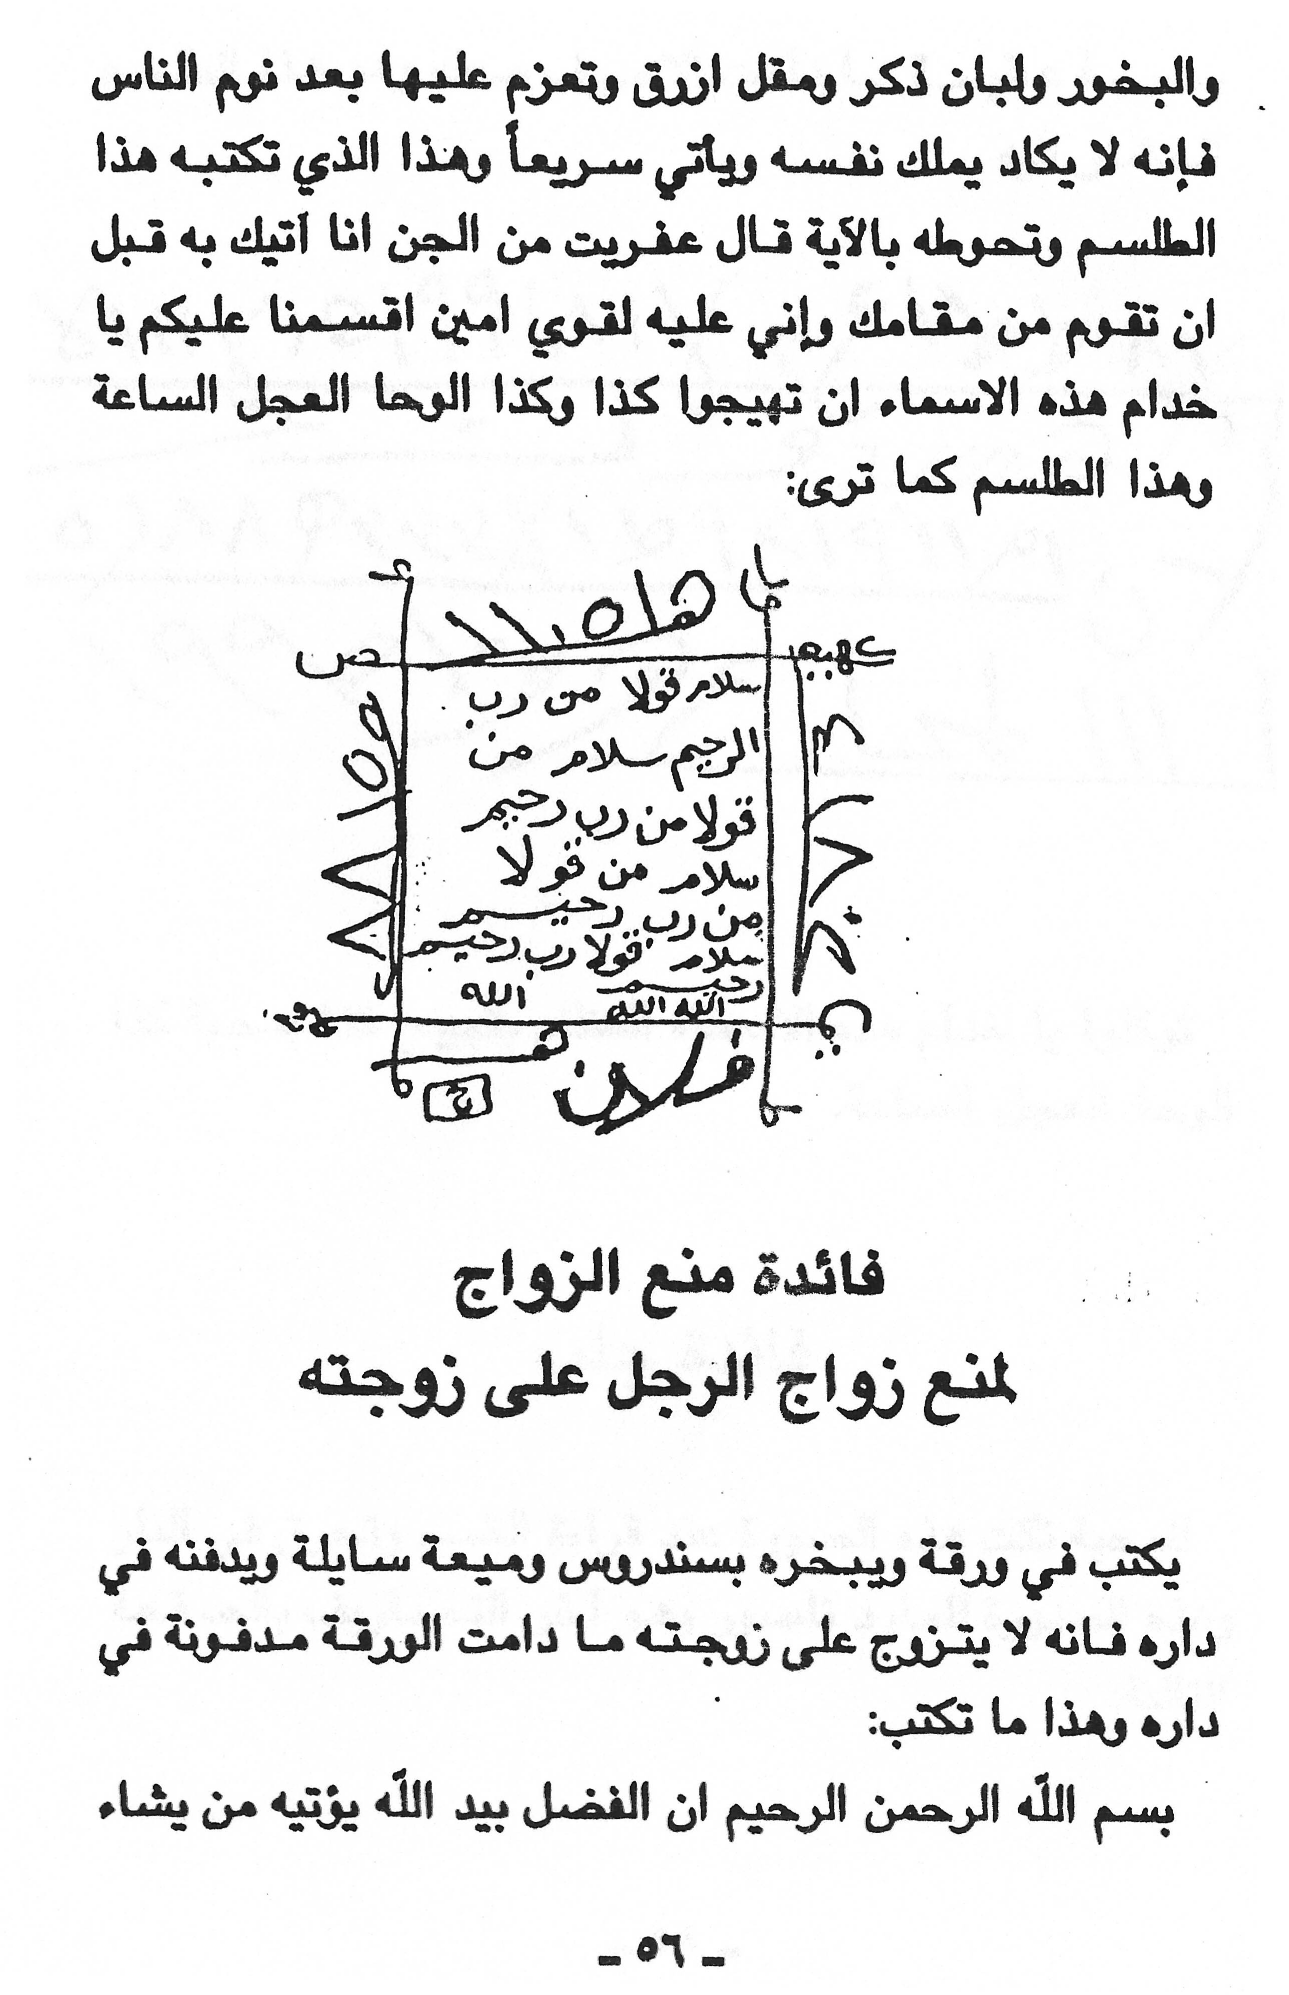 والبخور ولبان ذكر ومقل ازرق وتعزم عليها بعد نوم الناس
فإنه لا يكاد يملك نفسه ويأتي سريعاً وهذا الذي تكتبه هذا
الطلسم وتحوطه بالآية قال عفريت من الجن انا آتيك به قبل
ان تقوم من مقامك وإني عليه لقوي امين اقسمنا عليكم يا
خدام هذه الاسماء ان تهيجوا كذا وكذا الوحا العجل الساعة
وهذا الطلسم كما ترى:
ص
سلام قولا من رب
الرحيم سلام من
قولا من رب رحيم
سلام من قولا
من رب رحيم
سلام قولا رب رحيم
رحيم
الله الله الله
فائدة منع الزواج
لمنع زواج الرجل على زوجته
يكتب في ورقة ويبخره بسندروس وميعة سايلة ويدفنه في
داره فانه لا يتزوج على زوجته ما دامت الورقة مدفونة في
داره وهذا ما تكتب:
بسم الله الرحمن الرحيم ان الفضل بيد الله يؤتيه من يشاء
ـ ٥٦ ـ